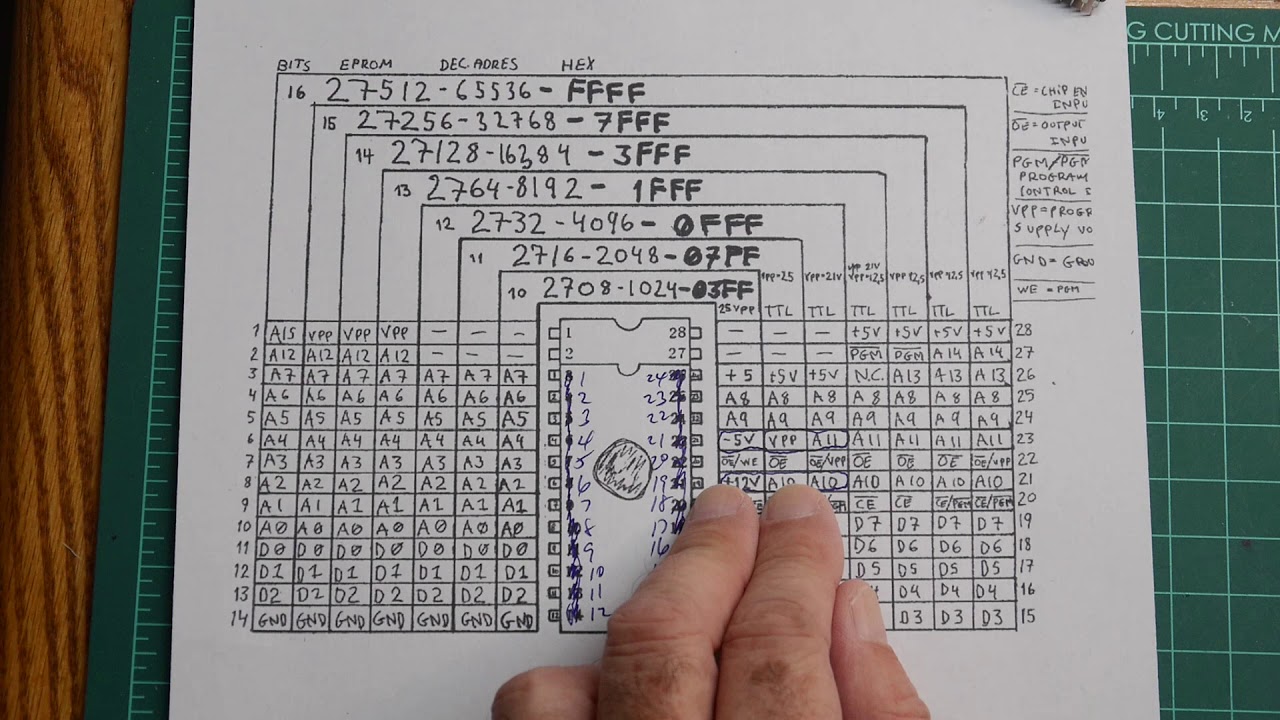 G CUTTING M
4 3 2
BITS EPROM DEC. ADRES HEX
16 27512-65536-FFFF
15 27256-32768-7FFF
14 27128-16384-3FFF
13 2764-8192-1FFF
12 2732-4096-0FFF
11 2716-2048-07PF
10 2708-1024-03FF
CE = CHIP EN
INPU
OE = OUTPUT
INPU
PGM/PGM
PROGRAM
CONTROL S
VPP = PROGR
SUPPLY VO
GND = GROU
WE = PGM
VPP=25 VPP=21V VPP 21V VPP 12,5 VPP 12,5 VPP 12,5
VPP=12,5
25VPP TTL TTL TTL TTL TTL TTL
1 A15 VPP VPP VPP – – – 1 28 – – – +5V +5V +5V +5V 28
2 A12 A12 A12 A12 – – – 2 27 – – – PGM PGM A14 A14 27
3 A7 A7 A7 A7 A7 A7 A7 1 24 +5 +5V +5V N.C. A13 A13 A13 26
4 A6 A6 A6 A6 A6 A6 A6 2 23 A8 A8 A8 A8 A8 A8 A8 25
5 A5 A5 A5 A5 A5 A5 A5 3 22 A9 A9 A9 A9 A9 A9 A9 24
6 A4 A4 A4 A4 A4 A4 A4 4 21 -5V VPP A11 A11 A11 A11 A11 23
7 A3 A3 A3 A3 A3 A3 A3 5 20 OE/WE OE OE/VPP OE OE OE OE/VPP 22
8 A2 A2 A2 A2 A2 A2 A2 6 19 +12V A10 A10 A10 A10 A10 A10 21
9 A1 A1 A1 A1 A1 A1 A1 7 18 CE CE CE/PGM CE/PGM 20
10 A0 A0 A0 A0 A0 A0 A0 8 17 D7 D7 D7 D7 19
11 D0 D0 D0 D0 D0 D0 D0 9 16 D6 D6 D6 D6 18
12 D1 D1 D1 D1 D1 D1 D1 10 D5 D5 D5 D5 17
13 D2 D2 D2 D2 D2 D2 D2 11 D4 D4 D4 16
14 GND GND GND GND GND GND GND 12 D3 D3 D3 15